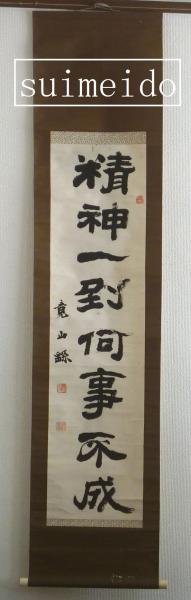 suimeido
精神一到何事不成
竟山録